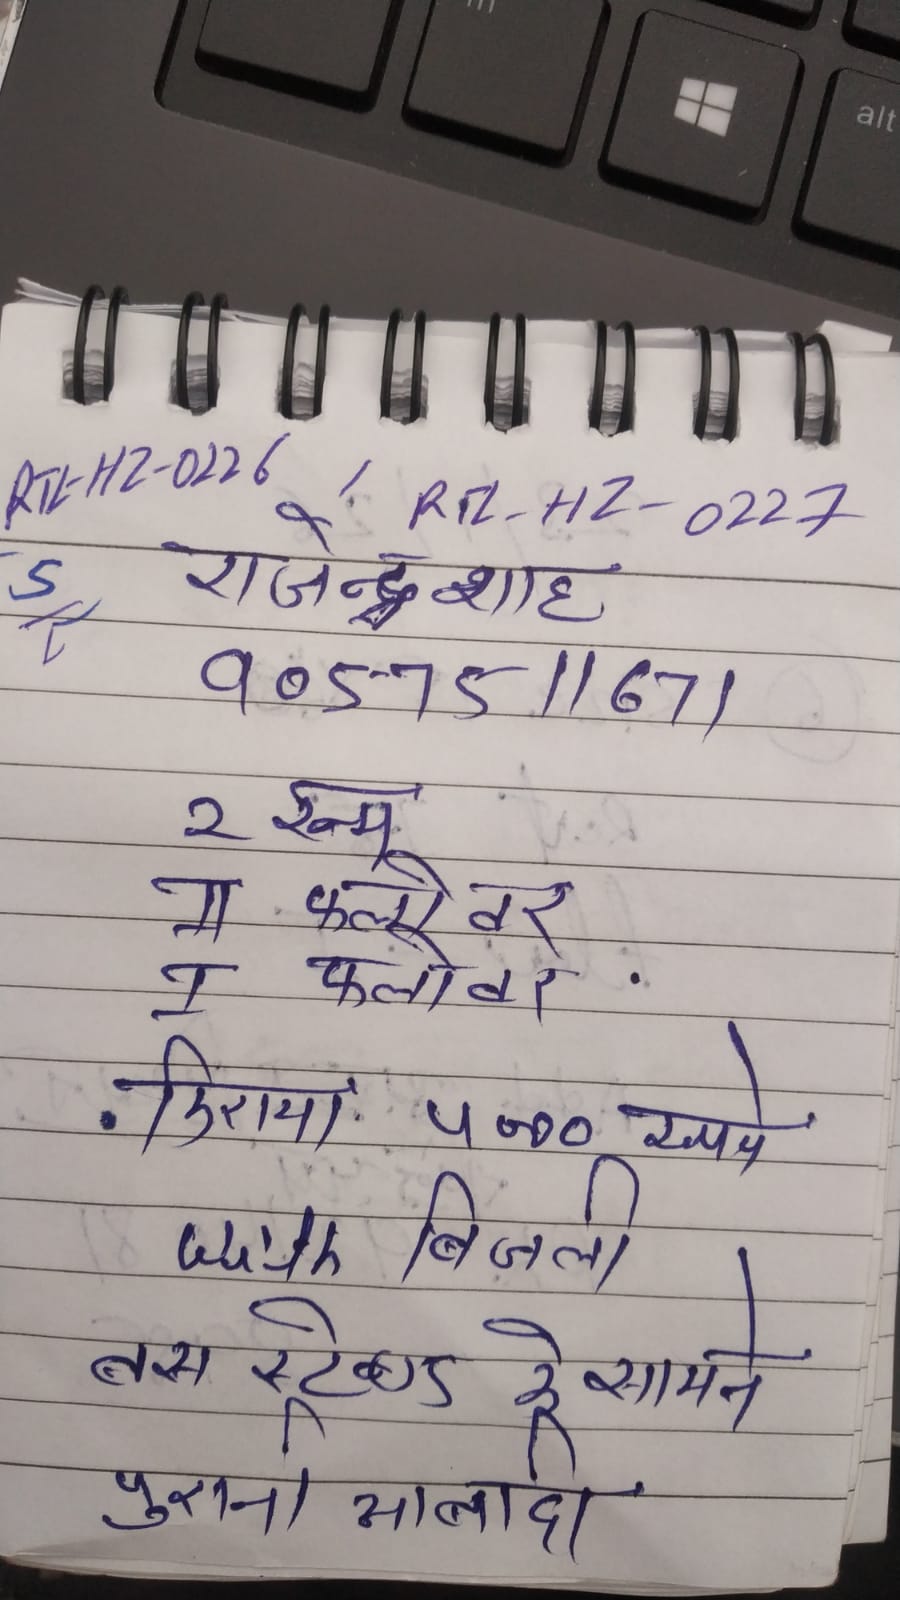 alt
RTL-HZ-0226 , RTL-HZ-0227
राजेन्द्र शाह
9057511671
2 रूम
II फ्लोवर
I फ्लोवर
किराया 5000 रूपये
with बिजली
बस स्टेण्ड के सामने
पुरानी आबादी